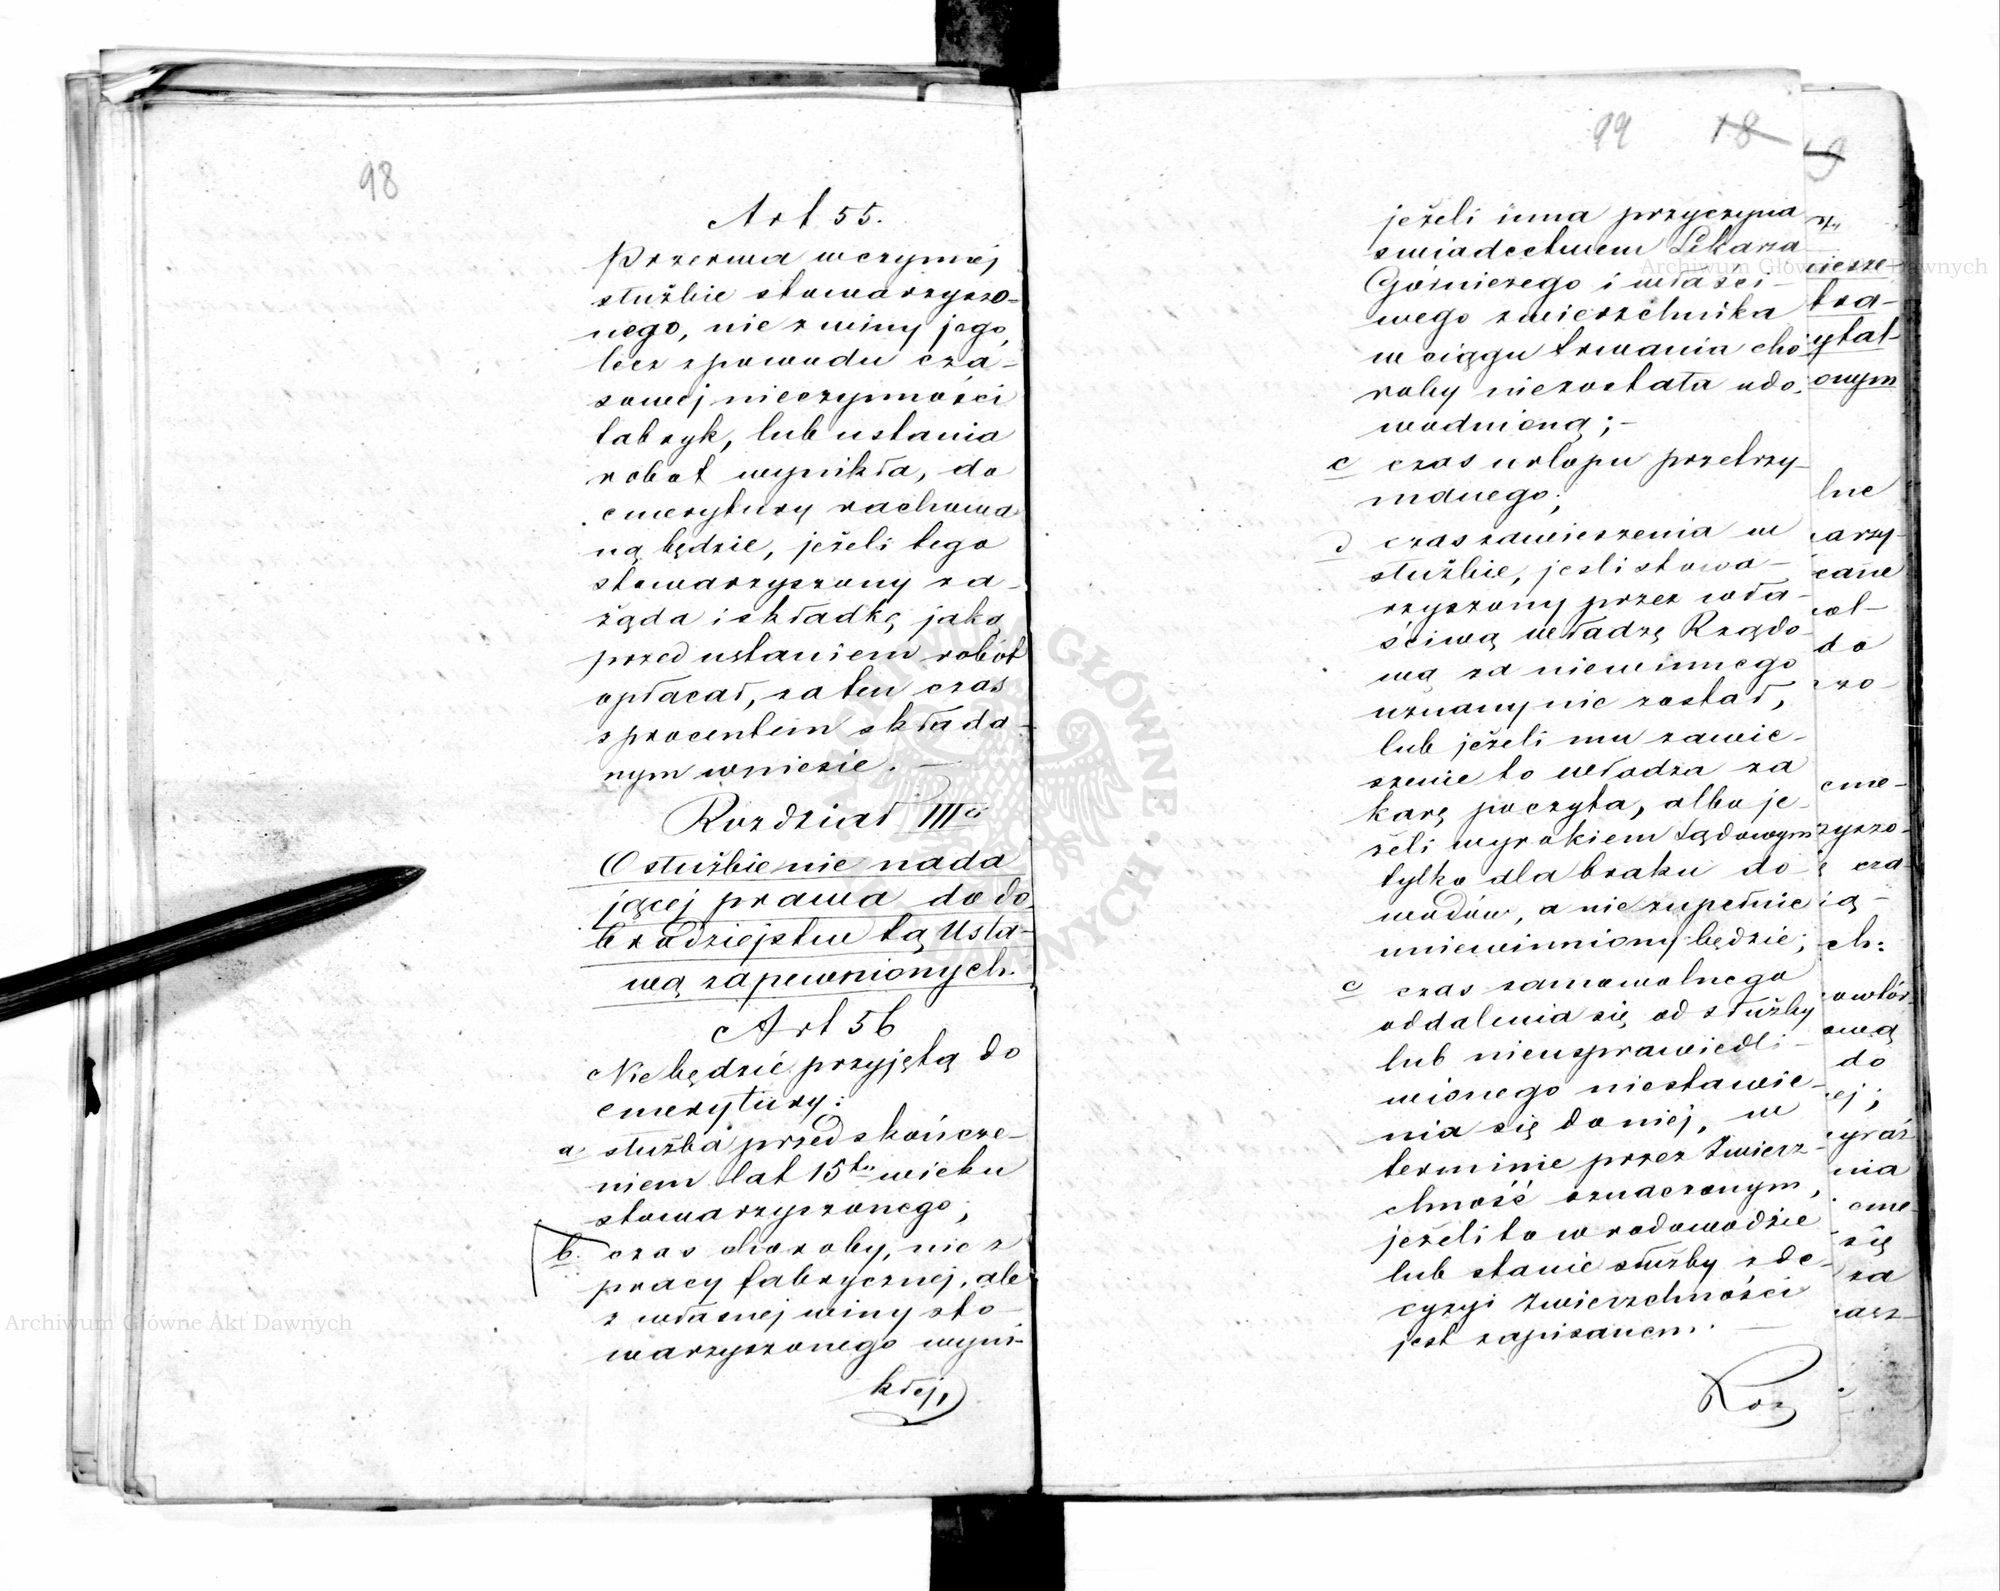 98
Art 55.
Przerwa w czynnej
służbie stowarzyszo-
nego, nie z winy jego,
lecz z powodu cza-
sowej nieczynności
fabryk, lub ustania
robot wynikła, do
emerytury rachowa
ną będzie, jeżeli tego
stowarzyszony za-
żąda i składkę jaką
przed ustaniem robót
opłacał, za ten czas
z procentem składa-
nym wniesie. —
Rozdział III ci
O służbie nie nada
jącej prawa do do-
brodziejstw tą Usta-
wą zapewnionych.
Art 56
Nie będzie przyjętą do
emerytury:
a służba przed skończe-
niem lat 15tu wieku
stowarzyszonego;
b. czas choroby, nie z
pracy fabrycznej, ale
z własnej winy sto-
warzyszonego wyni-
kłej,
99 18
jeżeli inna przyczyna
swiadectwem Lekarza
Górniczego i właści-
wego zwierzchnika
w ciągu trwania cho
roby niezostała udo-
wodnioną; -
c czas urlopu przetrzy-
manego;
d czas zawieszenia w
służbie, jeśli stowa-
rzyszony przez wła-
ściwą władzę Rządo-
wą za niewinnego
uznany nie został,
lub jeżeli mu zawie-
szenie to władza za
karę poczyta, albo je-
żeli wyrokiem Sądowym
tylko dla braku do-
wodów, a nie zupełnie
uniewinniony będzie;
e czas samowolnego
oddalenia się od służby
lub nieusprawiedli-
wionego niestawie-
nia się do niej, w
terminie przez Zwierz-
chność oznaczonym,
jeżeli to w rodowodzie
lub stanie służby z de-
cyzyi Zwierzchności
jest zapisanem. —
Roz
9
tra-
ytał-
onym
lne
arzy-
cane
wł-
do
zo-
eme-
zyszo-
cza-
ią -
ch:
owtór-
ową
do
ej;
nia
eme-
się
za
Archiwum Główne Akt Dawnych
Archiwum Główne Akt Dawnych